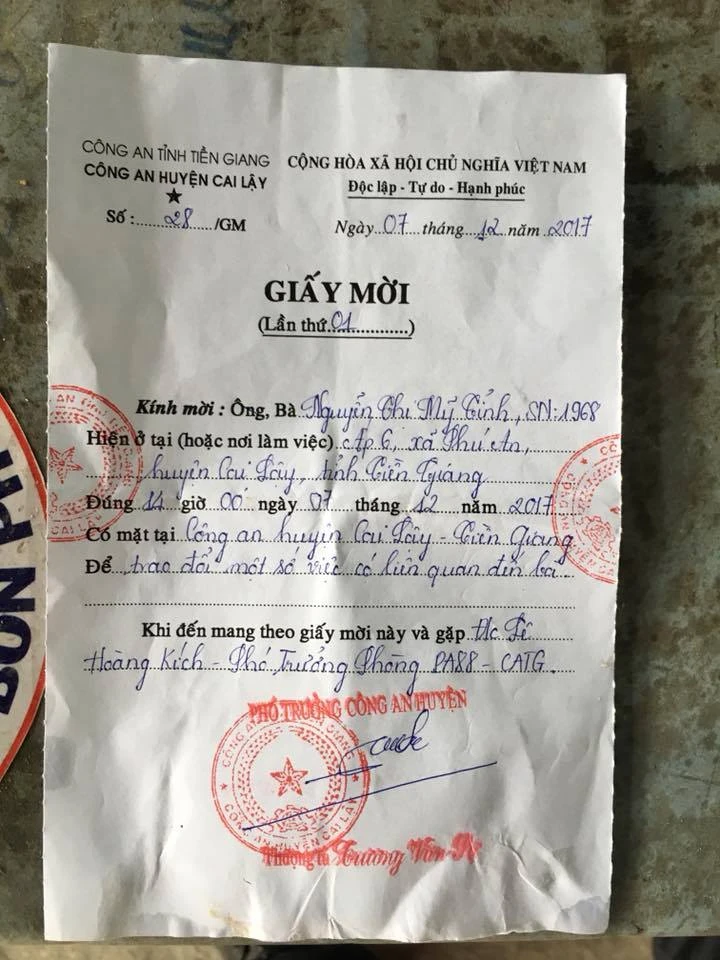 CÔNG AN TỈNH TIỀN GIANG
CÔNG AN HUYỆN CAI LẬY
Số : 28 /GM
CỘNG HÒA XÃ HỘI CHỦ NGHĨA VIỆT NAM
Độc lập - Tự do - Hạnh phúc
Ngày 07 tháng 12 năm 2017
GIẤY MỜI
(Lần thứ 01 )
Kính mời : Ông, Bà Nguyễn Thị Mỹ Tỉnh, SN: 1968
Hiện ở tại (hoặc nơi làm việc) ấp 6, xã Phú An,
huyện Cai Lậy, tỉnh Tiền Giang
Đúng 14 giờ 00 ngày 07 tháng 12 năm 2017
Có mặt tại Công an huyện Cai Lậy - Tiền Giang
Để trao đổi một số việc có liên quan đến bà
Khi đến mang theo giấy mời này và gặp Đ/c Lê
Hoàng Kích - Phó Trưởng Phòng PA88 - CATG
PHÓ TRƯỞNG CÔNG AN HUYỆN
CÔNG AN HUYỆN CAI LẬY
Thượng tá Trương Văn
BON PH